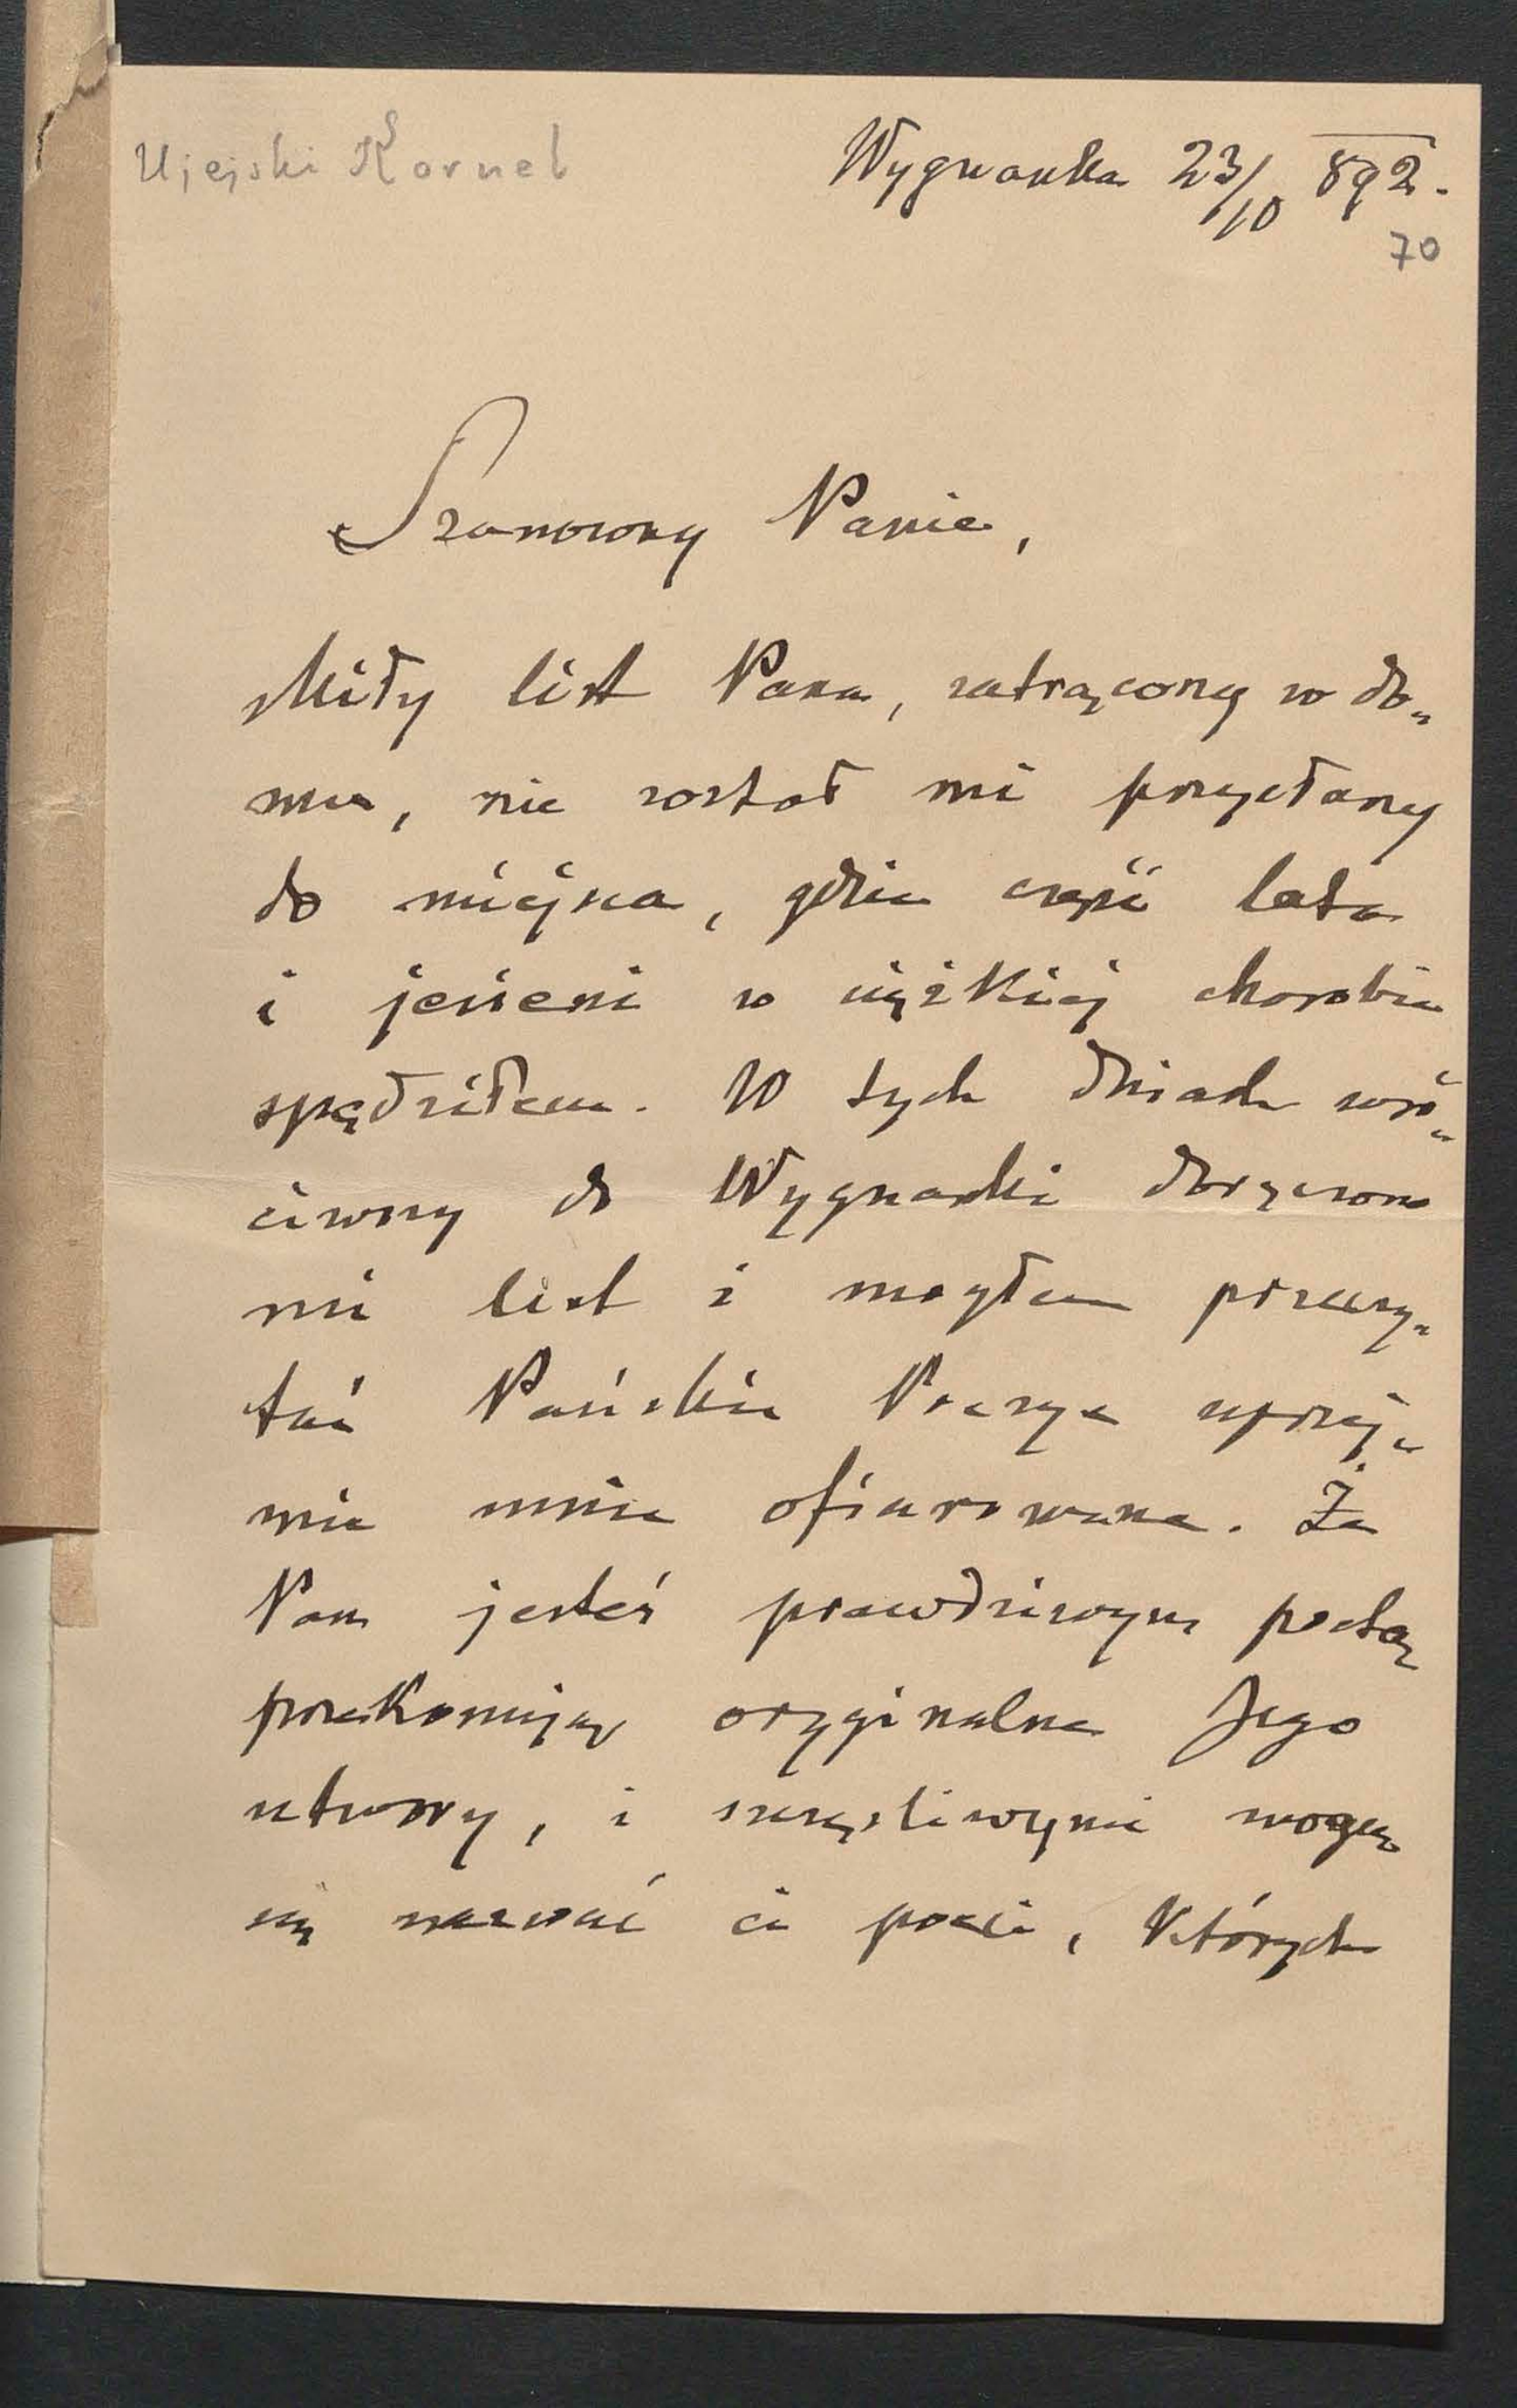 Ujejski Kornel
Wygnanka 23/10 892.
70
Szanowny Panie,
Miły list Pana, zatrącony w do„
mu, nie został mi przysłany
do miejsca, gdzie część lata
i jesieni w ciężkiej chorobie
spędziłem. W tych dniach wró„
ciwszy do Wygnanki doręczono
mi list i mogłem przeczy„
tać Pańskie Poezye uprzej„
mie mnie ofiarowane. Że
Pan jesteś prawdziwym poetą
przekonują oryginalne Jego
utwory, i szczęśliwymi mogą
się nazwać ci poeci, których